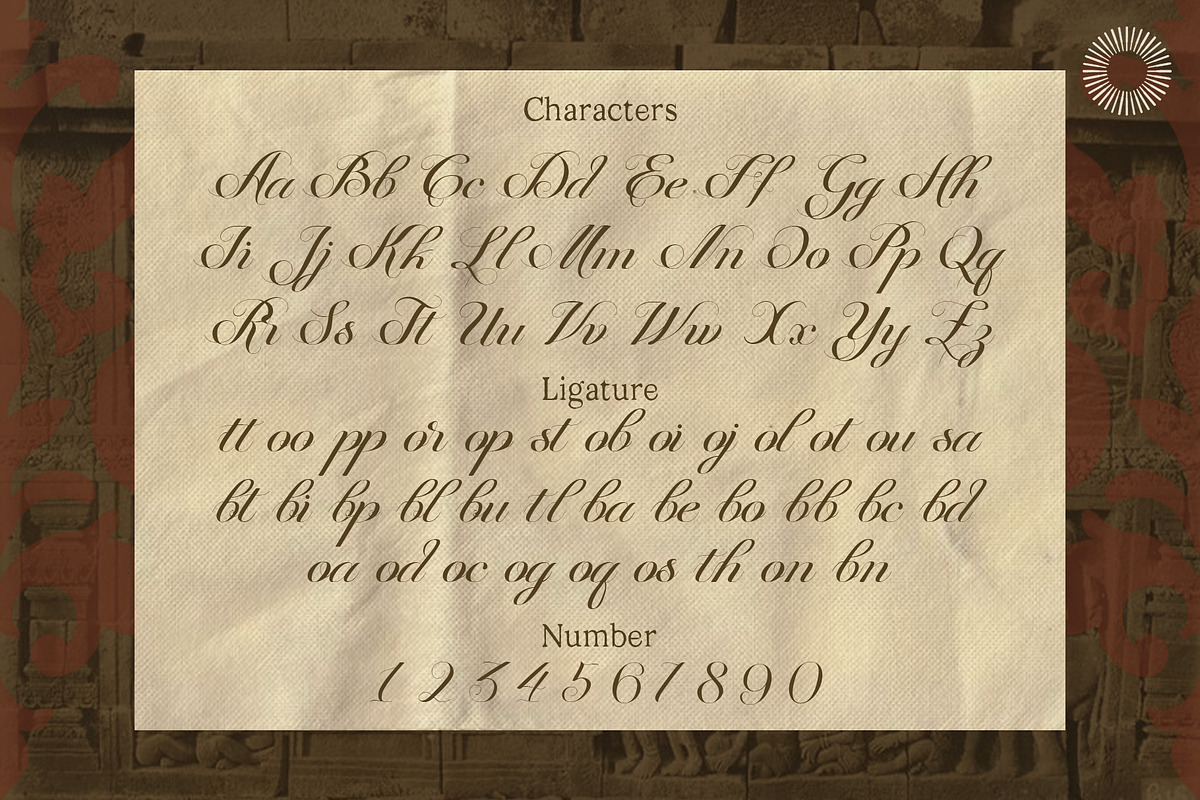 Characters
Aa Bb Cc Dd Ee Ff Gg Hh
Ii Jj Kk Ll Mm Nn Oo Pp Qq
Rr Ss Tt Uu Vv Ww Xx Yy Zz
Ligature
tt oo pp or op st ob oi oj ol ot ou sa
bt bi bp bl bu tl ba be bo bb bc bd
oa od oc og oq os th on bn
Number
1 2 3 4 5 6 7 8 9 0